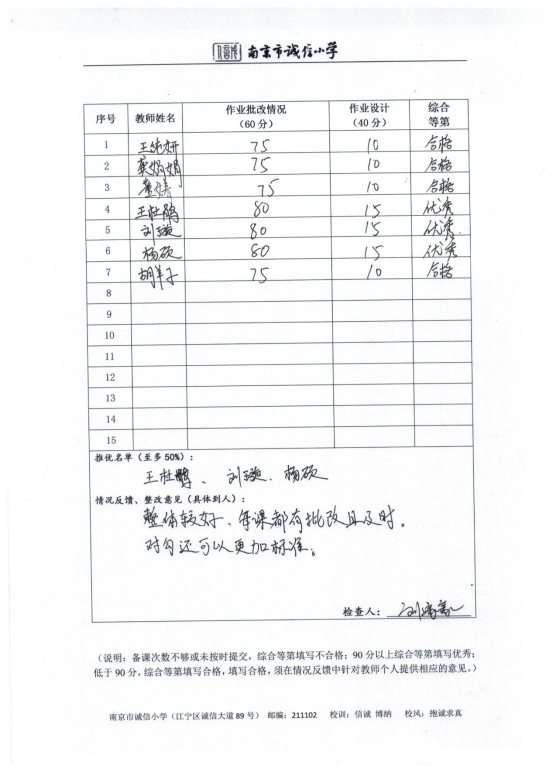 南京市诚信小学
序号 教师姓名 作业批改情况（60分） 作业设计（40分） 综合等第
1 王纯妍 75 10 合格
2 龚娟娟 75 10 合格
3 75 10 合格
4 王杜鹃 80 15 优秀
5 刘璇 80 15 优秀
6 杨硕 80 15 优秀
7 胡羊子 75 10 合格
8
9
10
11
12
13
14
15
推优名单（至多50%）：
王杜鹃、刘璇、杨硕
情况反馈、整改意见（具体到人）：
整体较好、每课都有批改且及时。
对勾还可以更加标准。
检查人：
（说明：备课次数不够或未按时提交，综合等第填写不合格；90分以上综合等第填写优秀；
低于90分，综合等第填写合格，填写合格，须在情况反馈中针对教师个人提供相应的意见。）
南京市诚信小学（江宁区诚信大道89号） 邮编：211102 校训：信诚 博纳 校风：抱诚求真